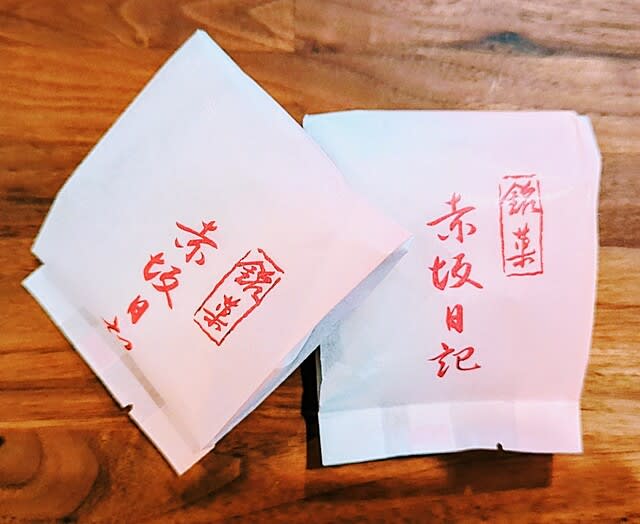 銘菓
赤坂日記
銘菓
赤坂日記